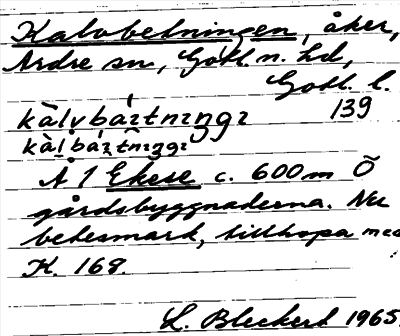 Kalvbetningen, åker,
Ardre sn, Gotl. n. hd,
Gotl. l.
139
kàlvbáɪtnɪŋgɪ
Å 1 Ekese c. 600 m Ö
gårdsbyggnaderna. Nu
betesmark, tillhopa med
K. 168.
L. Bleckert 1965.